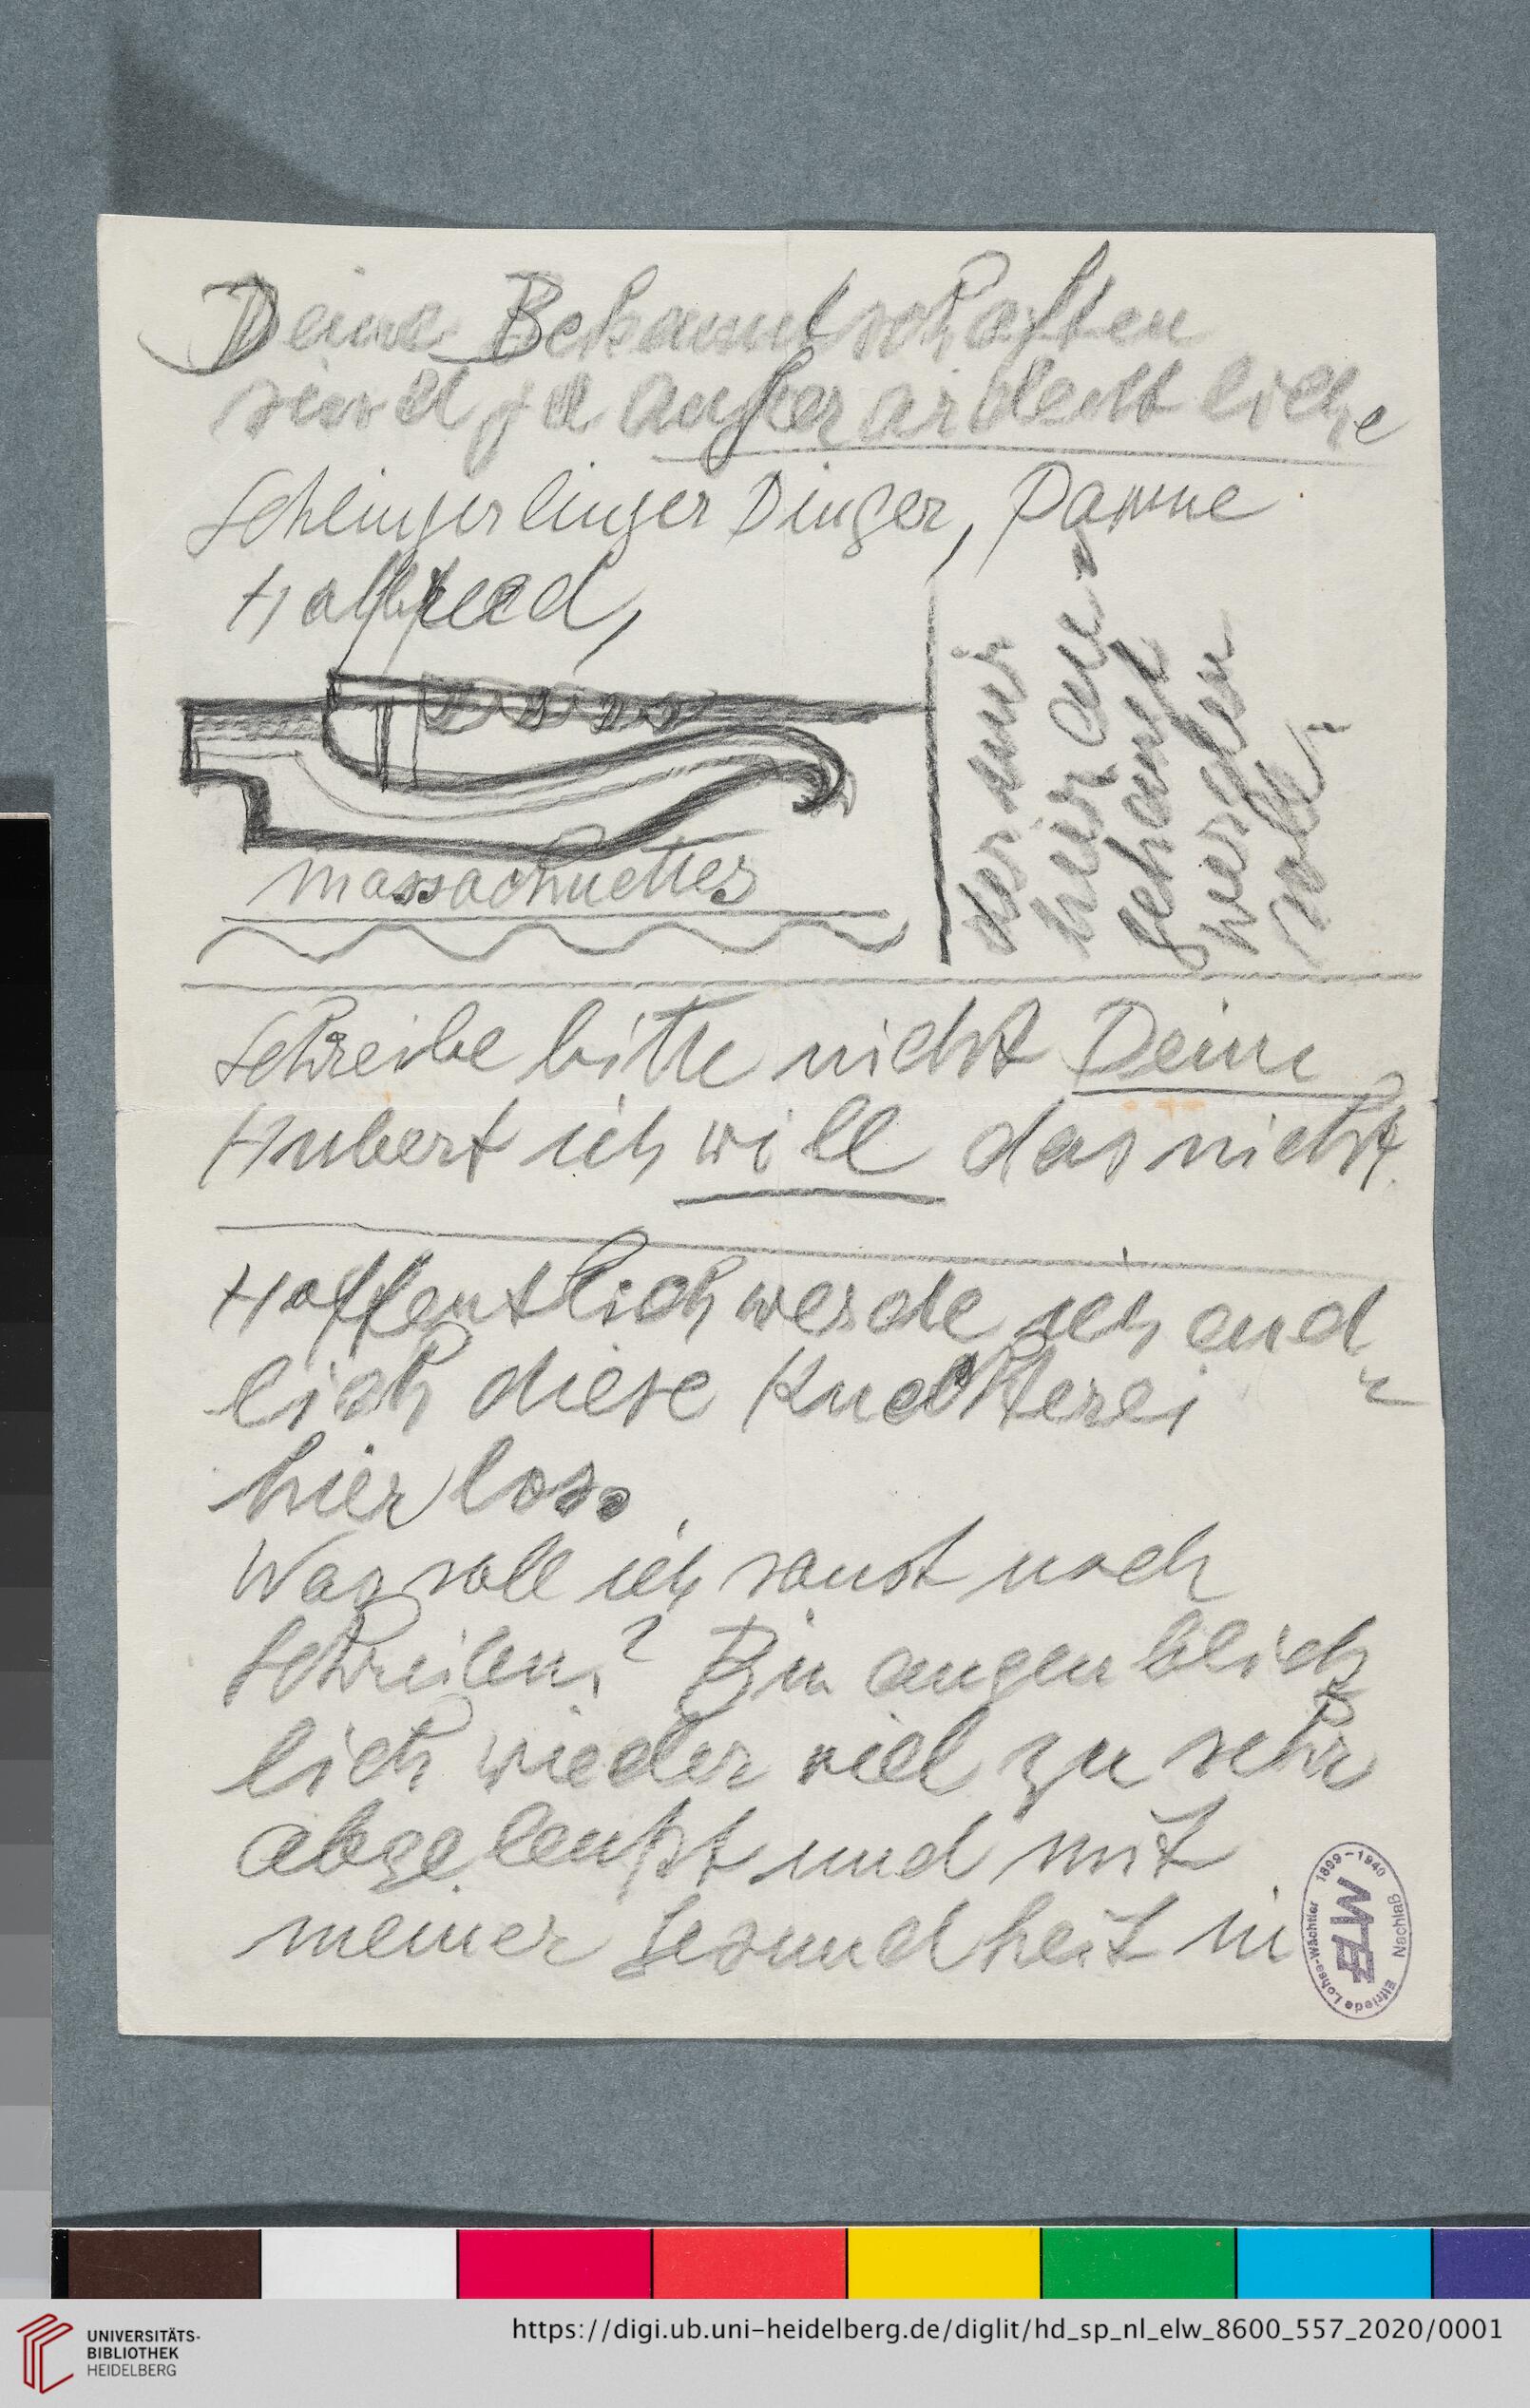 Deine Bekanntschaften
sind ja außerordentliche
Schlingerlinger Dinger, Panne
massachuettes
der mir
hier an-
gehängt
werden
soll!
Schreibe bitte nicht Deine
Hubert ich will das nicht.
Hoffentlich werde ich end-
lich diese Knechterei
hier los.
Was soll ich sonst noch
schreiben? Bin augenblick
lich wieder viel zu sehr
abgelenkt und mit
meiner Gesundheit in
Elfriede Lohse-Wächtler 1899-1940
ELW
Nachlaß
UNIVERSITÄTS-
BIBLIOTHEK
HEIDELBERG
https://digi.ub.uni-heidelberg.de/diglit/hd_sp_nl_elw_8600_557_2020/0001